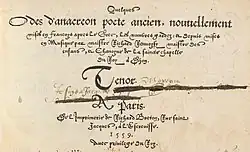 Quelques
Odes d'anacreon poete ancien, nouvellement
mises en françoys apres le Grec, les nombres gardez: & depuis mises
en Musique par maistre Richard Renvoysy maistre des
enfans, & Chantre de la sainte chapelle
du Roy à Dijon.
Tenor.
A Paris
De l'Imprimerie de Richard Breton, Rue saint
Jacques, à l'Escrevisse.
1559.
Avec privilege du Roy.